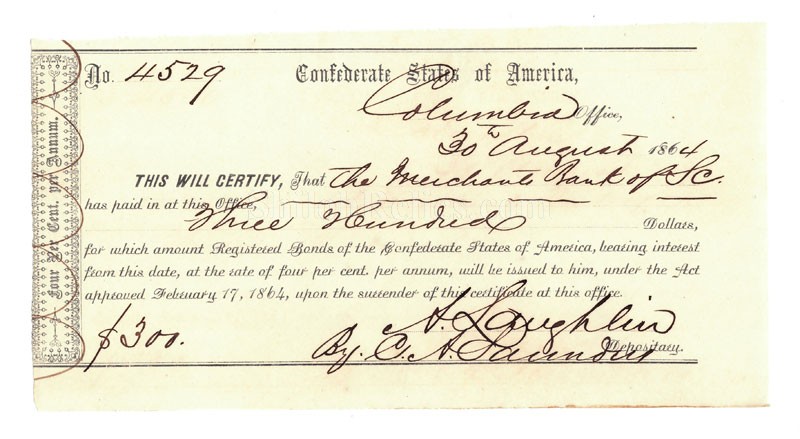 No. 4529 Confederate States of America,
Columbia Office,
30th August 1864
THIS WILL CERTIFY, That the Merchants Bank of SC.
has paid in at this Office,
Three Hundred Dollars,
for which amount Registered Bonds of the Confederate States of America, bearing interest
from this date, at the rate of four per cent. per annum, will be issued to him, under the Act
approved February 17, 1864, upon the surrender of this certificate at this office.
$300. A. Laughlin
By. C. A. Saunders Depositary.
Four Per Cent. per Annum.